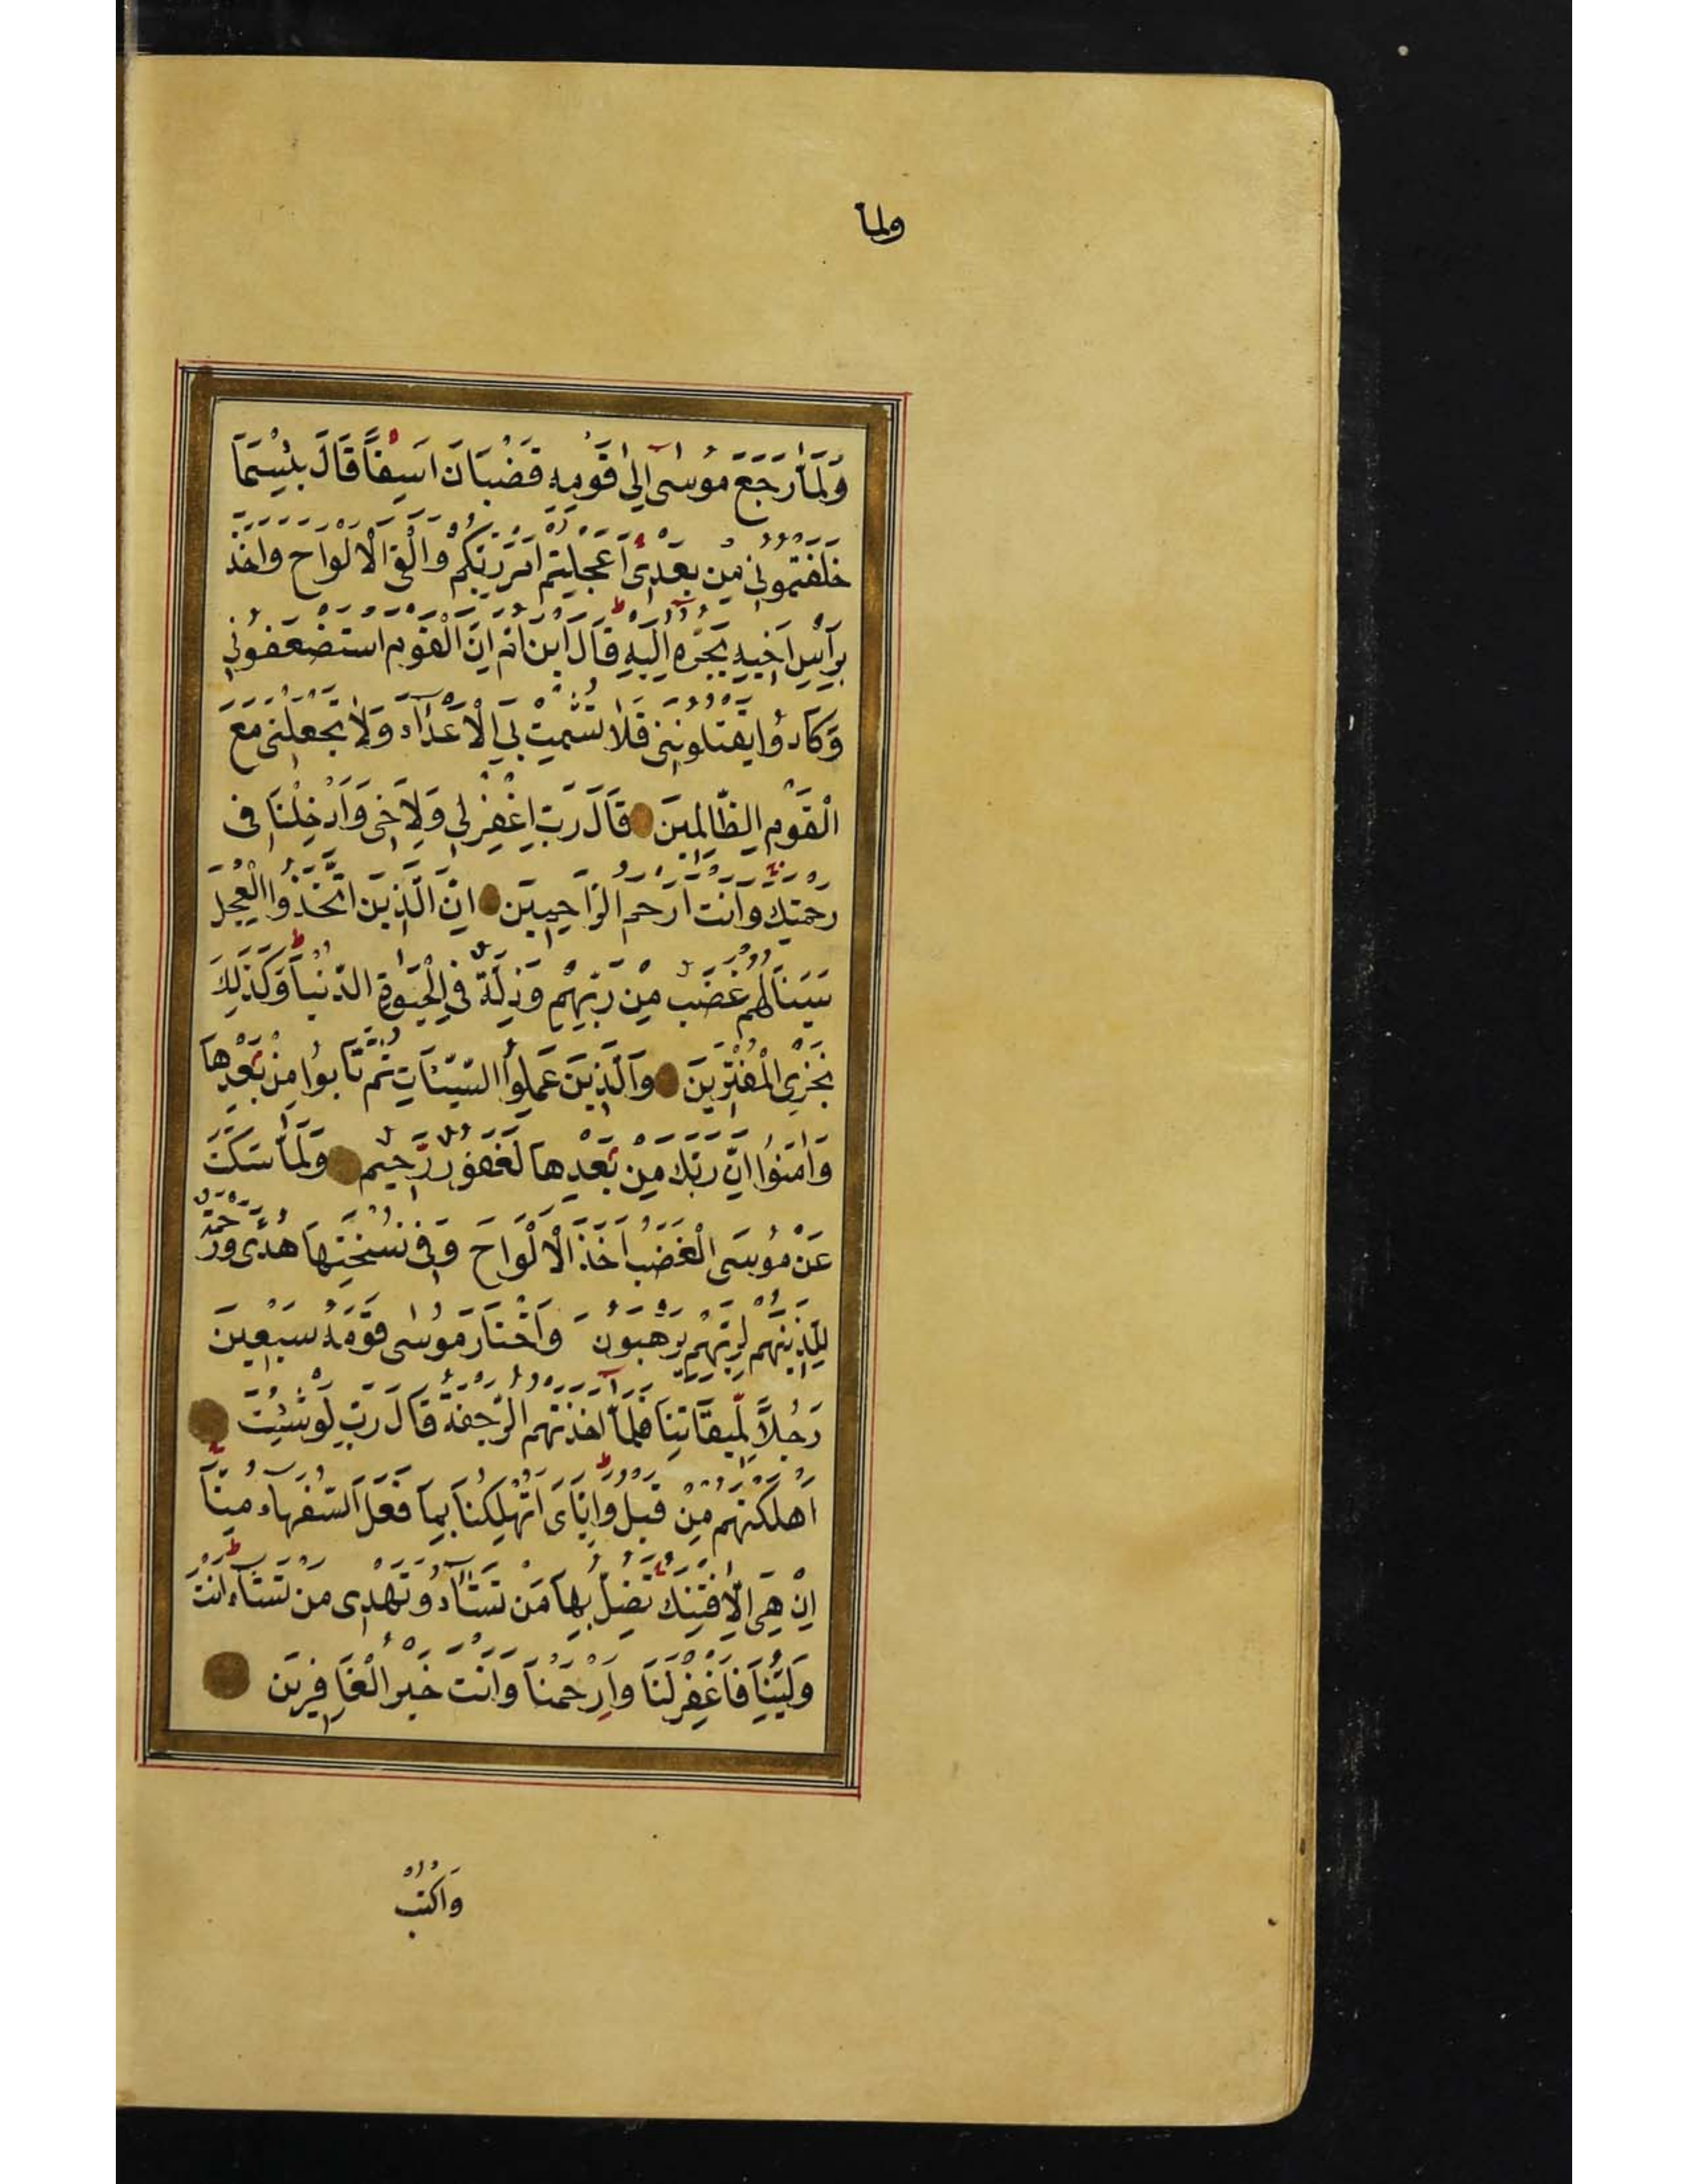 ولما
وَلَمَّا رَجَعَ مُوسٰى اِلٰى قَوْمِهٖ غَضْبَانَ اَسِفًا قَالَ بِئْسَمَا
خَلَفْتُمُونِي مِنْ بَعْدِي اَعَجِلْتُمْ اَمْرَ رَبِّكُمْ وَاَلْقَى الْاَلْوَاحَ وَاَخَذَ
بِرَاْسِ اَخِيهِ يَجُرُّهُ اِلَيْهِ قَالَ ابْنَ اُمَّ اِنَّ الْقَوْمَ اسْتَضْعَفُونِي
وَكَادُوا يَقْتُلُونَنِي فَلَا تُشْمِتْ بِيَ الْاَعْدَاءَ وَلَا تَجْعَلْنِي مَعَ
الْقَوْمِ الظَّالِمِينَ قَالَ رَبِّ اغْفِرْ لِي وَلِاَخِي وَاَدْخِلْنَا فِى
رَحْمَتِكَ وَاَنْتَ اَرْحَمُ الرَّاحِمِينَ اِنَّ الَّذِينَ اتَّخَذُوا الْعِجْلَ
سَيَنَالُهُمْ غَضَبٌ مِنْ رَبِّهِمْ وَذِلَّةٌ فِي الْحَيٰوةِ الدُّنْيَا وَكَذٰلِكَ
نَجْزِي الْمُفْتَرِينَ وَالَّذِينَ عَمِلُوا السَّيِّئَاتِ ثُمَّ تَابُوا مِنْ بَعْدِهَا
وَاٰمَنُوا اِنَّ رَبَّكَ مِنْ بَعْدِهَا لَغَفُورٌ رَحِيمٌ وَلَمَّا سَكَتَ
عَنْ مُوسَى الْغَضَبُ اَخَذَ الْاَلْوَاحَ وَفِي نُسْخَتِهَا هُدًى وَرَحْمَةٌ
لِلَّذِينَ هُمْ لِرَبِّهِمْ يَرْهَبُونَ وَاخْتَارَ مُوسٰى قَوْمَهُ سَبْعِينَ
رَجُلًا لِمِيقَاتِنَا فَلَمَّا اَخَذَتْهُمُ الرَّجْفَةُ قَالَ رَبِّ لَوْ شِئْتَ
اَهْلَكْتَهُمْ مِنْ قَبْلُ وَاِيَّايَ اَتُهْلِكُنَا بِمَا فَعَلَ السُّفَهَاءُ مِنَّا
اِنْ هِيَ اِلَّا فِتْنَتُكَ تُضِلُّ بِهَا مَنْ تَشَاءُ وَتَهْدِي مَنْ تَشَاءُ اَنْتَ
وَلِيُّنَا فَاغْفِرْ لَنَا وَارْحَمْنَا وَاَنْتَ خَيْرُ الْغَافِرِينَ
وَاكْتُبْ